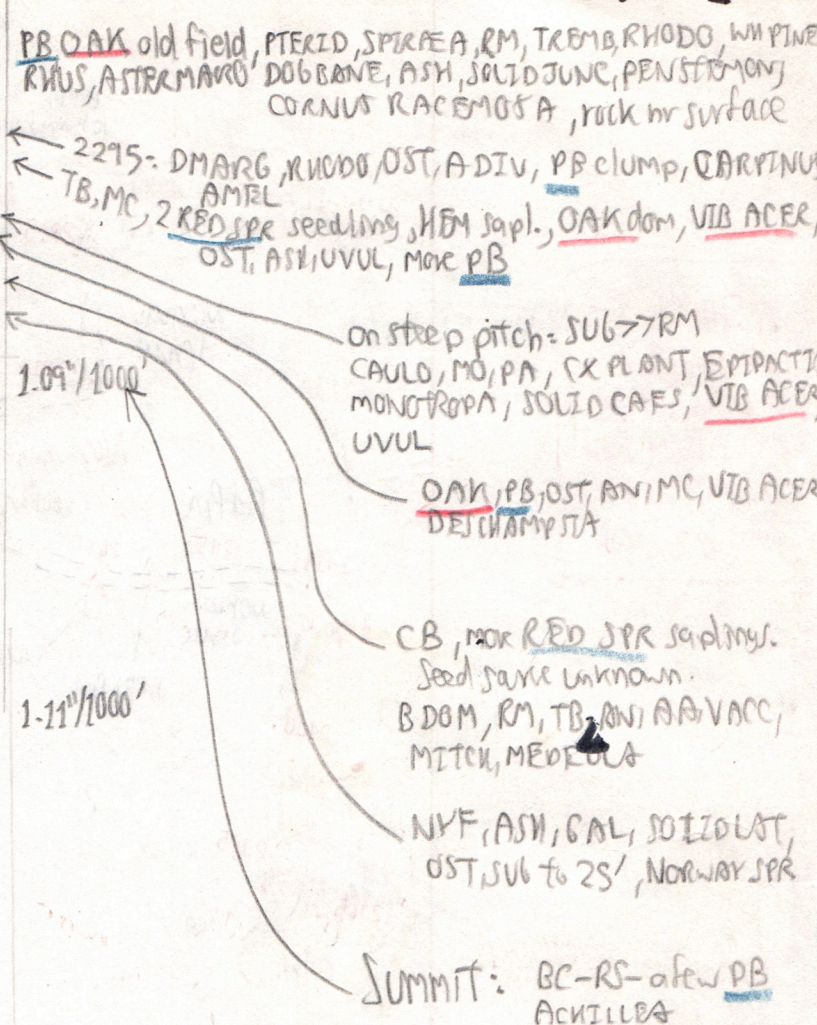 PB OAK old field, PTERID, SPIRAEA, RM, TREMB, RHODO, WH PINE
RHUS, ASTERMACRO, DOGBANE, ASH, SOLID JUNC, PENSTEMON,
CORNUS RACEMOSA, rock nr surface
2295: DMARG, RHODO, OST, ADIV, PB clump, CARPINUS
AMEL
TB, MC, 2 RED SPR seedling, HEM sapl., OAK dom, VIB ACER,
OST, ASH, UVUL, more PB
on steep pitch: SUG>>RM
CAULO, MO, PA, CX PLANT, EPIPACTI
MONOTROPA, SOLID CAES, VIB ACER
UVUL
1.09"/1000'
OAK, PB, OST, AN, MC, VIB ACER
DESCHAMPSIA
CB, more RED SPR saplings.
Seed unknown.
BDOM, RM, TB, AN, AA, VACC,
MITCH, MEDEOLA
1.11"/1000'
NYF, ASH, GAL, SOLID LAT,
OST, SUG to 25', NORWAY SPR
Summit: BC-RS-a few PB
ACHILLEA